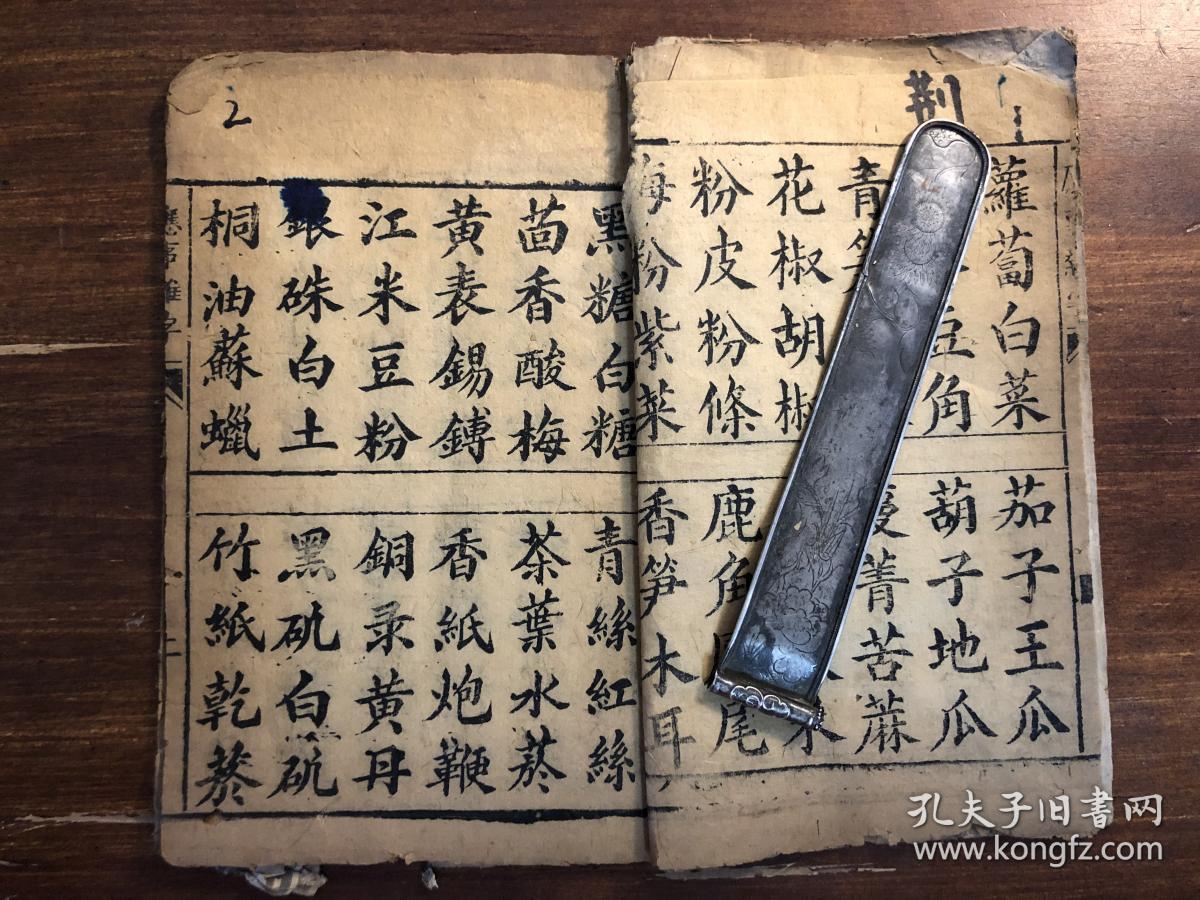 荆
1
蘿蔔白菜
豆角
青
花椒胡椒
粉皮粉條
海粉紫菜
茄子王瓜
葫子地瓜
蔓菁苦蔴
鹿角尾
香笋木耳
2
黑糖白糖
茴香酸梅
黄表錫鎛
江米豆粉
銀硃白土
桐油蘇蠟
青絲紅絲
茶葉水菸
香紙炮鞭
銅录黄丹
黑矾白矾
竹紙乾菸
孔夫子旧書网
www.kongfz.com